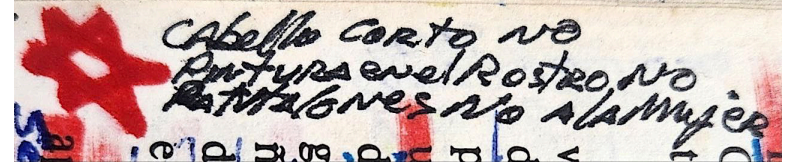 CAbello CORTO NO
PINTURA en el ROSTRO NO
PANTALONES NO A lA MUJER